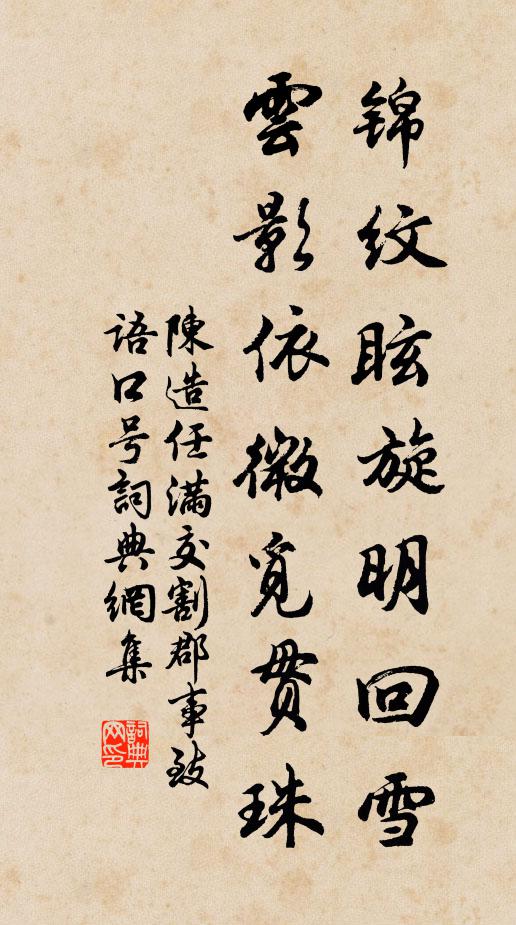 锦纹眩旋明回雪
雲影依微觅贯珠
陳造任满交割郡事致
语口号詞典網集
詞典网印